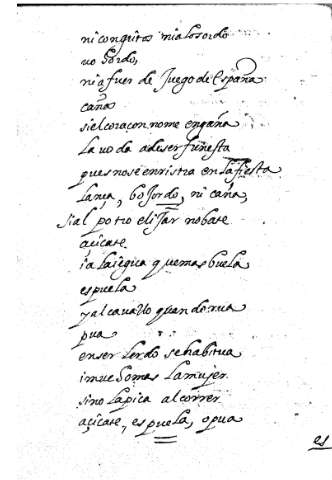 ni con gritos ni alo sordo
vo sordo,
ni a fuer de Juego de España
caña
si el coraçon no me engaña
la vo da a de ser funesta
pues no se enristra en la fiesta
lança, bo sordo, ni caña,
si al potro el iJar no bate
açicate
i a la iegica que mas buela
espuela
y al cauallo quando rua
pua
en ser lerdo se habitua
i mueho mas la mujer
sino la pica al correr
açicate, espuela, o pua
es